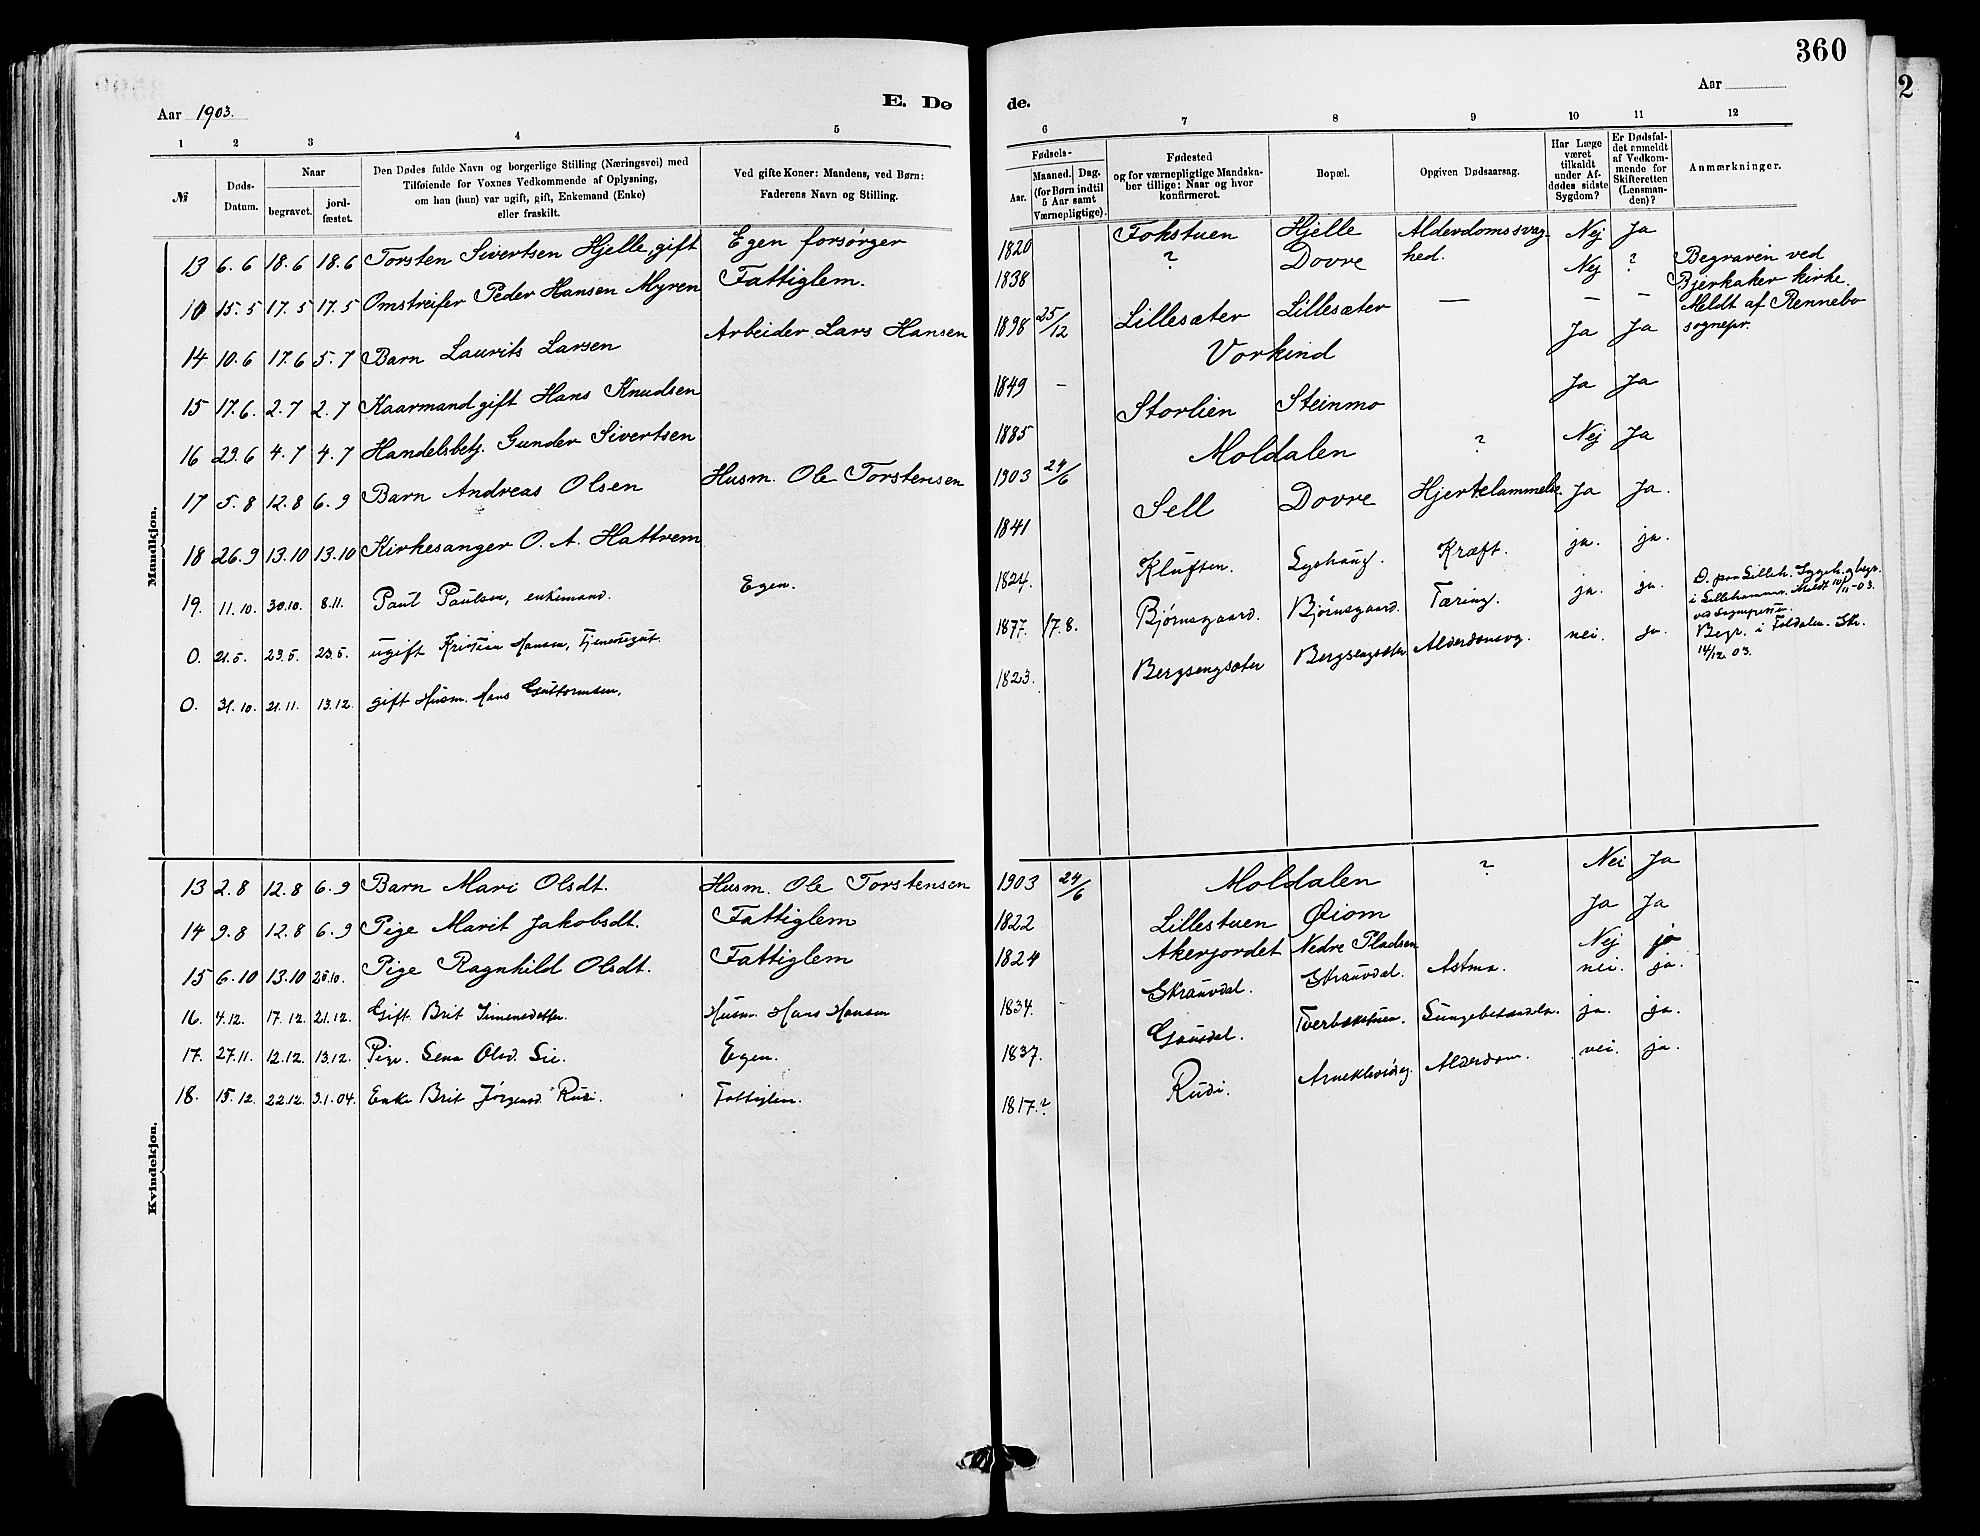 360
2
Aar 1903.
E. Dø
de.
Aar
1 2 3 4 5
6 7 8 9 10 11 12
№
Døds-Datum.
Naar
begravet.
jordfæstet.
Den Dødes fulde Navn og borgerlige Stilling (Næringsvei) med
Tilføiende for Voxnes Vedkommende af Oplysning,
om han (hun) var ugift, gift, Enkemand (Enke)
eller fraskilt.
Ved gifte Koner: Mandens, ved Børn:
Faderens Navn og Stilling.
Fødsels-
Aar.
Maaned. Dag.
(for Børn indtil
5 Aar samt
Værnepligtige).
Fødested
og for værnepligtige Mandska-
ber tillige: Naar og hvor
konfirmeret.
Bopæl.
Opgiven Dødsaarsag.
Har Læge
været
tilkaldt
under Af-
dødes sidste
Sygdom?
Er Dødsfal-
det anmeldt
af Vedkom-
mende for
Skifteretten
(Lensman-
den)?
Anmærkninger.
Mandkjøn.
13 6.6 18.6 18.6 Torsten Sivertsen Hjelle, gift Egen forsørger 1820 Fokstuen Hjelle Alderdomssvag- Nej Ja
hed.
10 15.5 17.5 17.5 Omstreifer Peder Hansen Myren Fattiglem. 1838 ? Dovre Nej ? Begraven ved
Bjerkaker kirke.
Meldt af Rennebo
sognepr.
— — —
14 10.6 17.6 5.7 Barn Laurits Larsen Arbeider Lars Hansen 1898 25/12 Lillesæter Lillesæter Ja Ja
15 17.6. 2.7 2.7 Kaarmand gift Hans Knudsen 1849 - Vorkind Ja Ja
16 29.6 4.7 4.7 Handelsbetj. Gunder Sivertsen 1885 Storlien Steinmo Nej Ja
17 5.8 12.8 6.9 Barn Andreas Olsen Husm. Ole Torstensen 1903 24/6 Moldalen ?
18 26.9 13.10 13.10 Kirkesanger O. A. Hattrem 1841 Sell Dovre Hjertelammelse. Ja Ja.
19. 11.10. 30.10. 8.11. Paul Paulsen, enkemand. Egen. 1824. Kluften. Lyshaug. Kræft. ja. ja.
0. 21.5. 29.5. 23.5. ugift Kristian Hansen, Tjenestegut. 1877. 17.8. Bjørnsgaard. Bjørnsgaard. Tæring. ja. ja. D. paa Lilleh. Sygeh. og begr.
i Lillehammer. Meldt 10/11-03.
ved Sognepresten.
0. 31.10. 21.11. 13.12. gift Husm. Hans Guttormsen, 1823. Bergsengsæter Bergsengsæter Alderdomsvg. nei. ja. Begr. i Foldalen. Skr.
14/12. 03.
Kvindekjøn.
13 2.8 12.8 6.9 Barn Mari Olsdt. Husm. Ole Torstensen 1903 24/6 Moldalen ? Nei Ja
14 9.8 12.8 6.9 Pige Marit Jakobsdt. Fattiglem 1822 Lillestuen Øiom Ja Ja
15 6.10 13.10 25.10. Pige Ragnhild Olsdt. Fattiglem 1824 Akerjordet Nedre Pladsen Nej ja
16. 4.12. 17.12. 21.12. Gift Brit Simensdatter. Husm. Hans Hansen 1834. - Skrauvdal. Skrauvdal. Astma. nei. ja.
17. 27.11. 12.12. 13.12. Pige. Lena Olsd. Lie. Egen. 1837. Gausdal. Tverbækstuen. Lungebetændelse. ja. ja.
18. 15.12. 22.12. 3.1.04. Enke Brit Jørgensd. Rudi. Fattiglem. 1817.? Rudi. Alderdom. nei. ja.